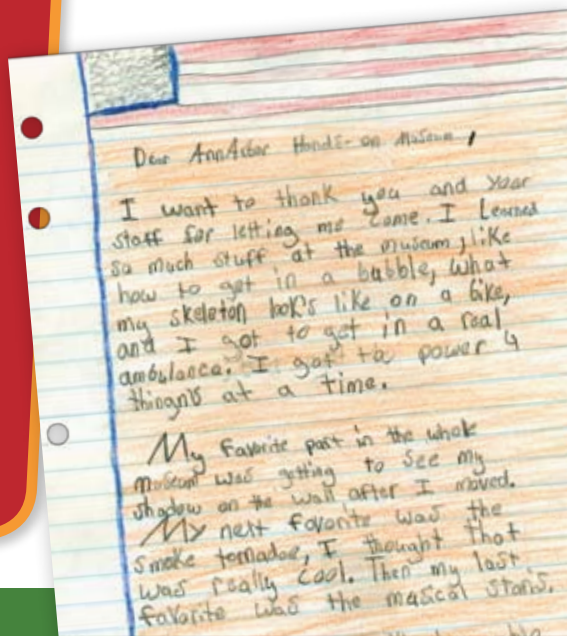 Dear AnnArbor Hands-on Museum,
I want to thank you and your
staff for letting me come. I Learned
so much stuff at the museum, like
how to get in a bubble, what
my skeleton look's like on a bike,
and I got to get in a real
ambulance. I got to power 4
thingn's at a time.
My favorite part in the whole
museum was getting to see my
shadow on the wall after I moved.
My next favorite was the
smoke tornadoe, I thought that
was really cool. Then my last
favorite was the masical stairs.